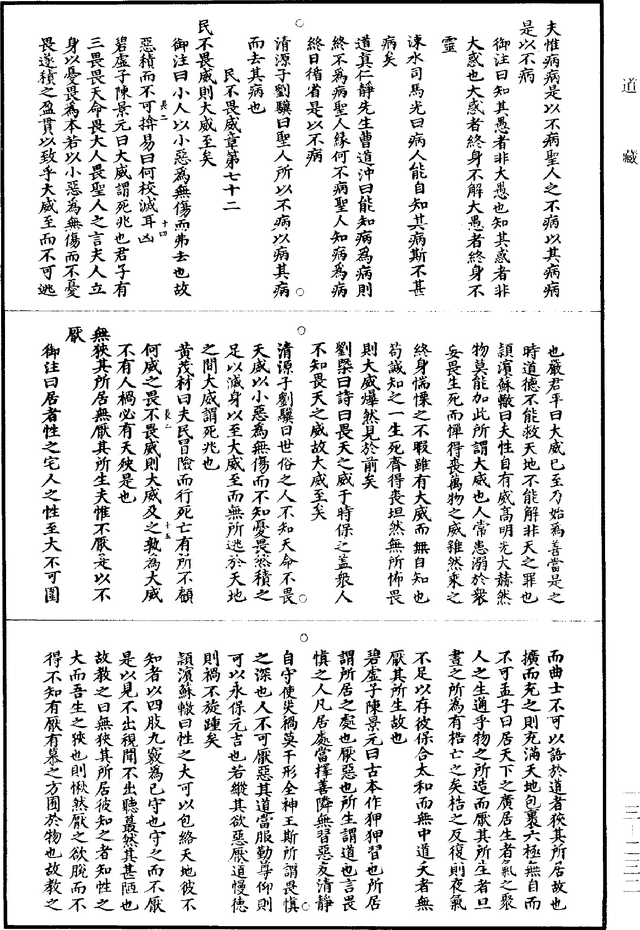 道藏
夫惟病病是以不病聖人之不病以其病病
是以不病
御注曰知其愚者非大愚也知其惑者非
大惑也大惑者終身不解大愚者終身不
靈
涑水司馬光曰病人能自知其病斯不甚
病矣
道真仁靜先生曹道沖曰能知病為病則
終不為病聖人緣何不病聖人知病為病
終日循省是以不病
清源子劉驥曰聖人所以不病以病其病
而去其病也
民不畏威章第七十二
民不畏威則大威至矣
御注曰小人以小惡為無傷而弗去也故
長二
十四
惡積而不可揜易曰何校滅耳凶
碧虛子陳景元曰大威謂死兆也君子有
三畏畏天命畏大人畏聖人之言夫人立
身以憂畏為本若以小惡為無傷而不憂
畏遂積之盈貫以致乎大威至而不可逃
也嚴君平曰大威已至乃始為善當是之
時道德不能救天地不能解非天之罪也
潁濱蘇轍曰夫性自有威高明光大赫然
物莫能加此所謂大威也人常患溺於衆
妄畏生死而憚得喪萬物之威雜然乘之
終身惴慄之不暇雖有大威而無自知也
苟誠知之一生死齊得喪坦然無所怖畏
則大威燁然見於前矣
劉槩曰詩曰畏天之威于時保之蓋衆人
不知畏天之威故大威至矣
清源子劉驥曰世俗之人不知天命不畏
天威以小惡為無傷而不知憂畏然積之
足以滅身以至大威至而無所逃於天地
之間大威謂死兆也
黃茂材曰夫民冒險而行死亡有所不顧
何威之畏不畏威則大威及之孰為大威
長二
十五
不有人禍必有天殃是也
無狹其所居無厭其所生夫惟不厭是以不
厭
御注曰居者性之宅人之性至大不可圍
而曲士不可以語於道者狹其所居故也
擴而充之則充滿天地包裹六極無自而
不可孟子曰居天下之廣居生者氣之聚
人之生通乎物之所造而厭其所生者旦
晝之所為有梏亡之矣梏之反復則夜氣
不足以存彼保合太和而無中道夭者無
厭其所生故也
碧虛子陳景元曰古本作狎狎習也所居
謂所居之處也厭惡也所生謂道也言畏
慎之人凡居處當擇善隣無習惡友清靜
自守使失禍莫干形全神王斯所謂畏慎
之深也人不可厭惡其道當服勤尊仰則
可以永保元吉也若縱其欲惡厭道慢德
則禍不旋踵矣
潁濱蘇轍曰性之大可以包絡天地彼不
知者以四肢九竅為己守也守之而不厭
是以見不出視聞不出聽蕞然其甚陋也
故教之曰無狹其所居彼知之者知性之
大而吾生之狹也則愀然厭之欲脫而不
得不知有厭有慕之方囿於物也故教之
一三-二三二